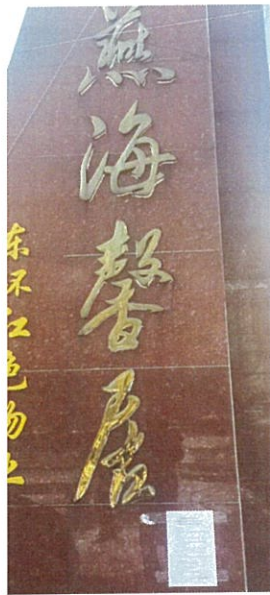 燕海馨居
东环红色物业